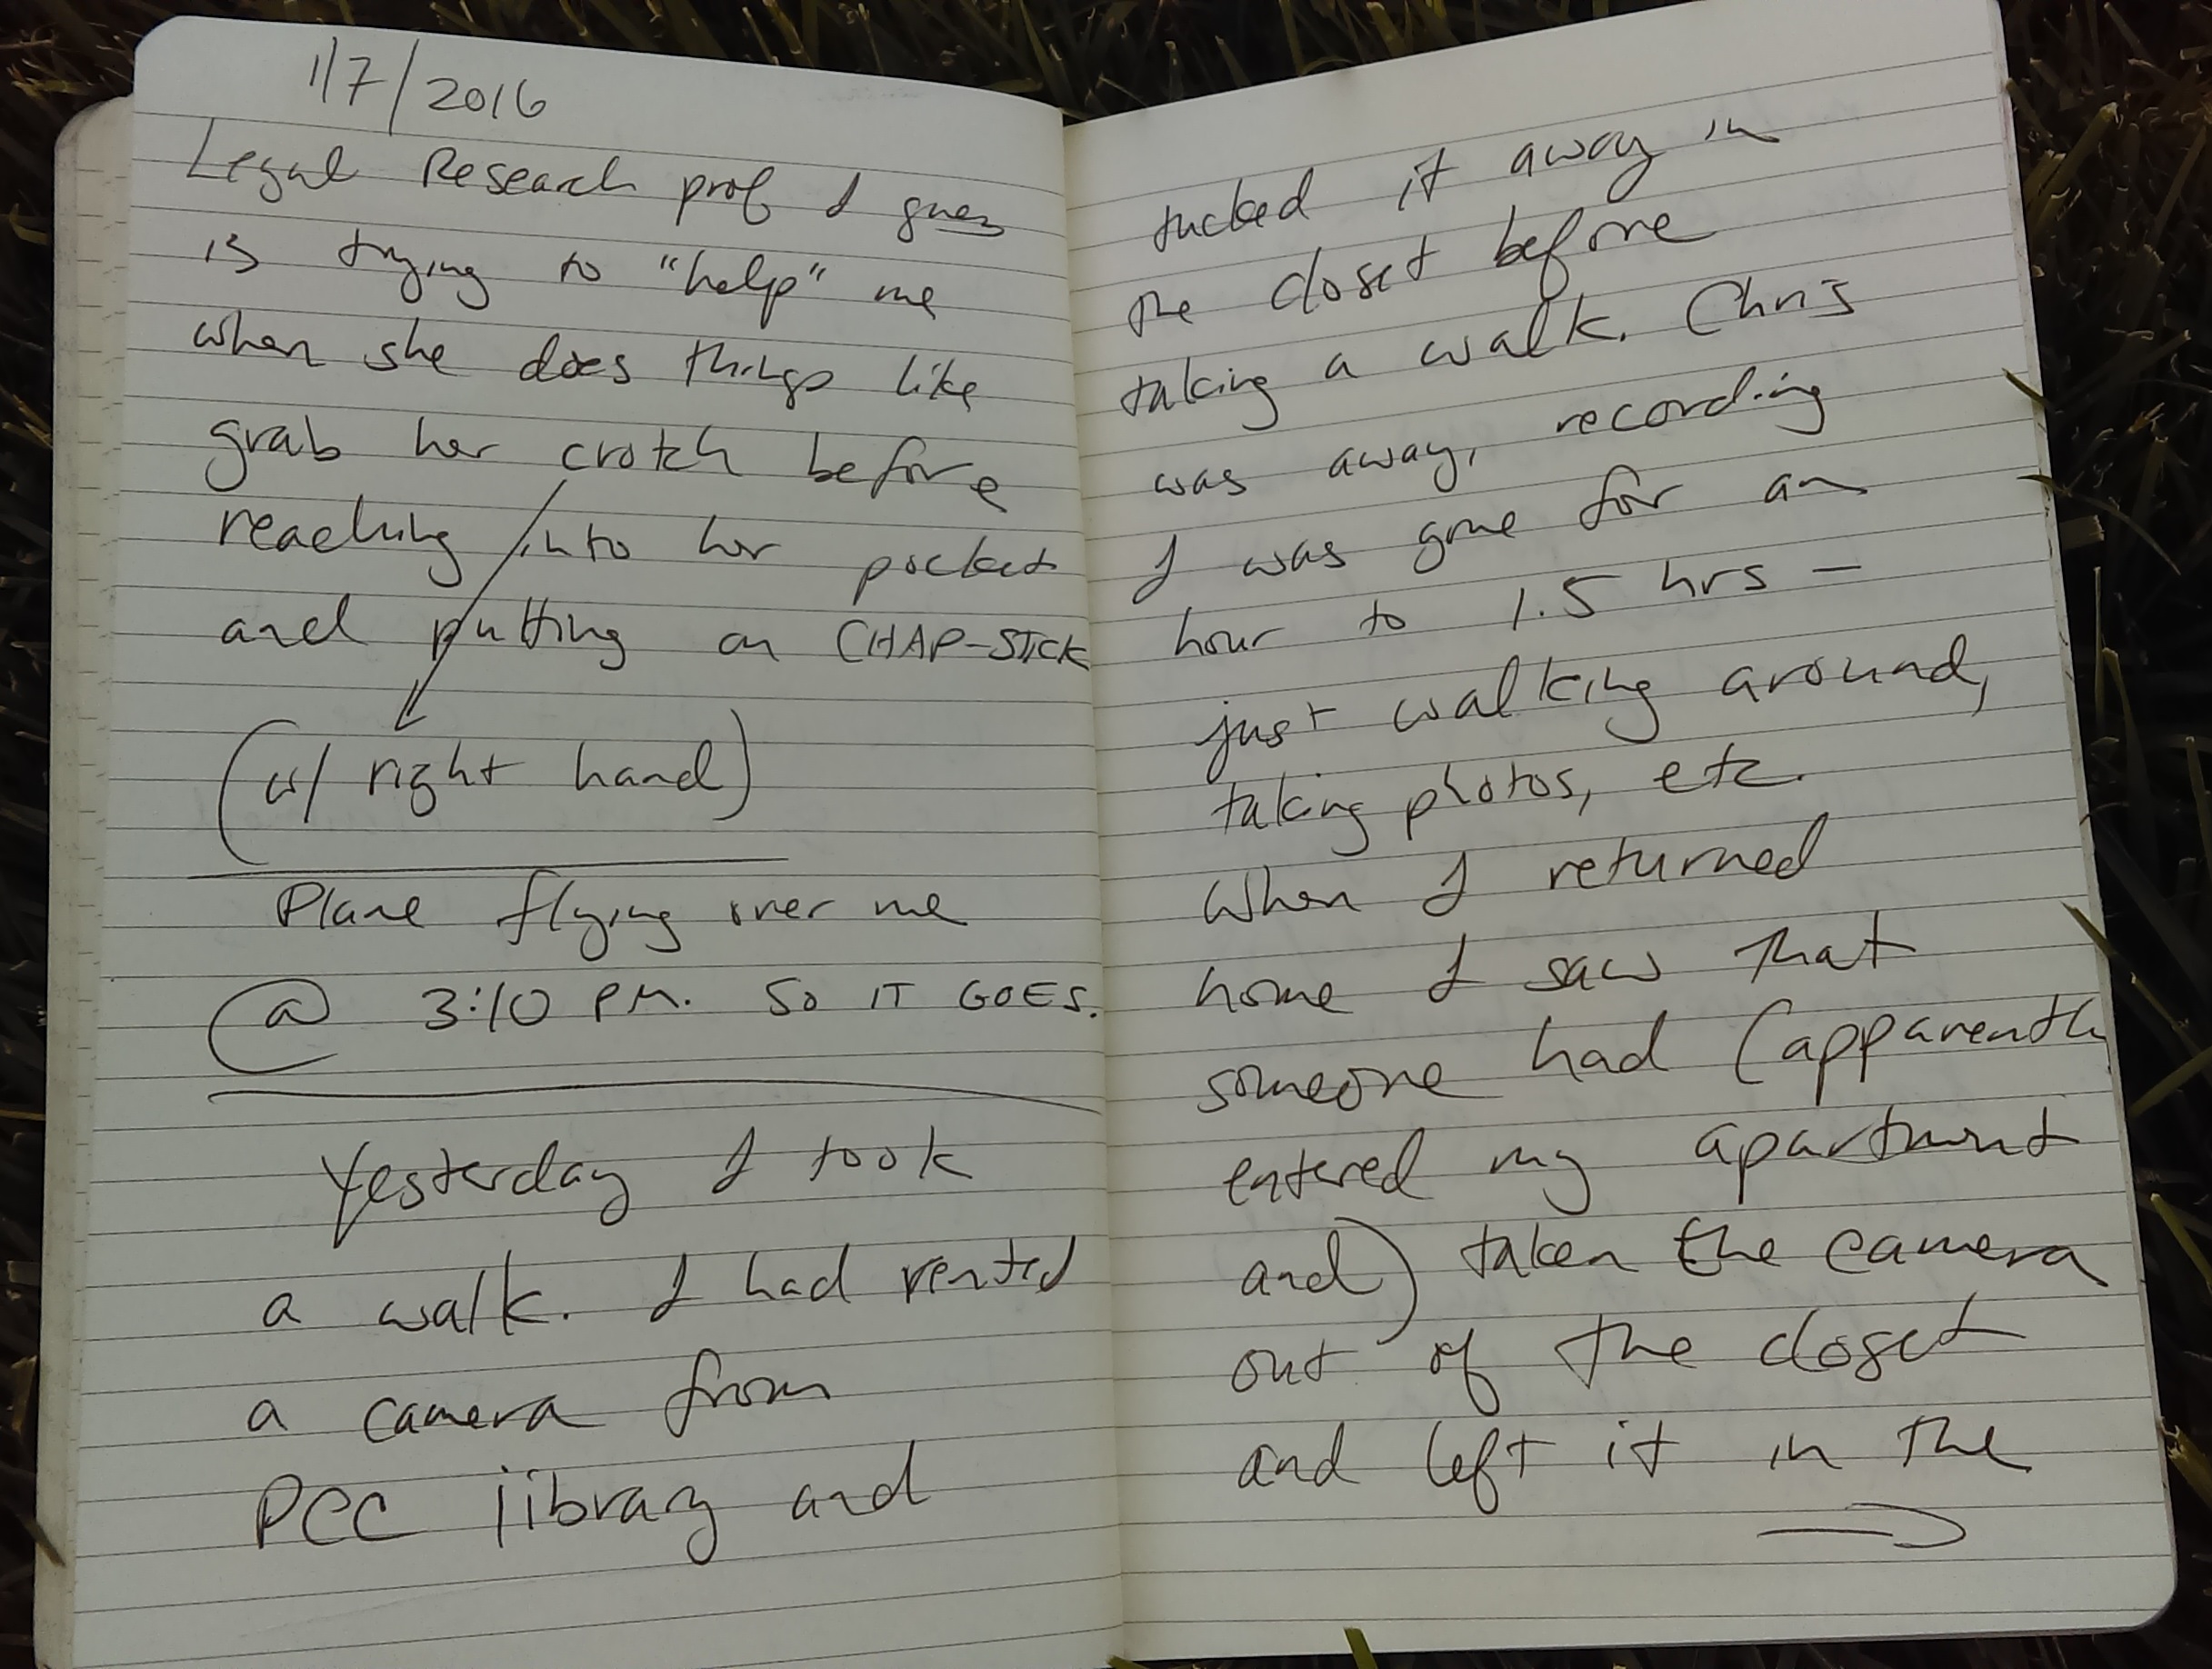 1/7/2016
Legal Research prof I guess
is trying to "help" me
when she does things like
grab her crotch before
reaching into her pocket
and putting on CHAP-STICK
(w/ right hand)
Plane flying over me
@ 3:10 PM. SO IT GOES.
Yesterday I took
a walk. I had rented
a camera from
PCC library and
tucked it away in
the closet before
taking a walk. Chris
was away, recording
I was gone for an
hour to 1.5 hrs —
just walking around,
taking photos, etc.
When I returned
home I saw that
someone had (apparently
entered my apartment
and) taken the camera
out of the closet
and left it in the